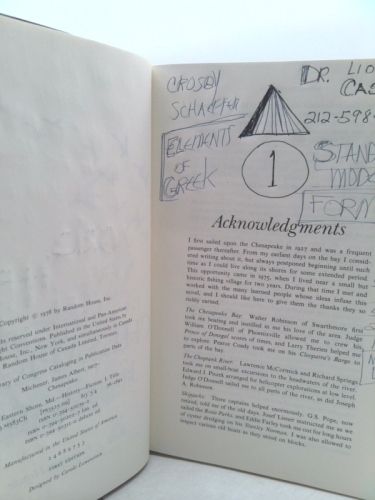 Copyright © 1978 by Random House, Inc.
rights reserved under International and Pan-American
Published in the United States by
House, Inc., New York, and simultaneously in Canada
Random House of Canada Limited, Toronto.
Library of Congress Cataloging in Publication Data
Michener, James Albert, 1907-
Chesapeake.
Eastern Shore, Md.—History—Fiction. I. Title
Manufactured in the United States of America
FIRST EDITION
Designed by Carole Lowenstein
CROSBY
SCHAEFFER
ELEMENTS
OF
GREEK
1
DR. LIO
CAS
212-598-
STAND
MIDD
FORM
Acknowledgments
I first sailed upon the Chesapeake in 1927 and was a frequent
passenger thereafter. From my earliest days on the bay I consid-
ered writing about it, but always postponed beginning until such
time as I could live along its shores for some extended period.
This opportunity came in 1975, when I lived near a small but
historic fishing village for two years. During that time I met and
worked with the many learned people whose ideas infuse this
novel, and I should like here to give them the thanks they so
richly earned.
The Chesapeake Bay: Walter Robinson of Swarthmore first
took me boating and instilled in me his love of the area. Judge
William O'Donnell of Phoenixville allowed me to crew his
Prince of Donegal scores of times, and Larry Therien helped me
explore. Pearce Coady took me on his Cleopatra's Barge to
parts of the bay.
The Choptank River: Lawrence McCormick and Richard Springs
took me on small-boat excursions to the headwaters of the river.
Edward J. Piszek arranged for helicopter explorations at low level.
Judge O'Donnell sailed me to all parts of the river, as did Joseph
A. Robinson.
Skipjacks: Three captains helped unceasingly. G.S. Pope, now
retired, told me of the old days. Josef Liener instructed me as we
sailed the Rosie Parks, and Eddie Farley took me out for long hours
of oyster dredging on his Stanley Norman. I was also allowed to
inspect various old boats as they stood on blocks.